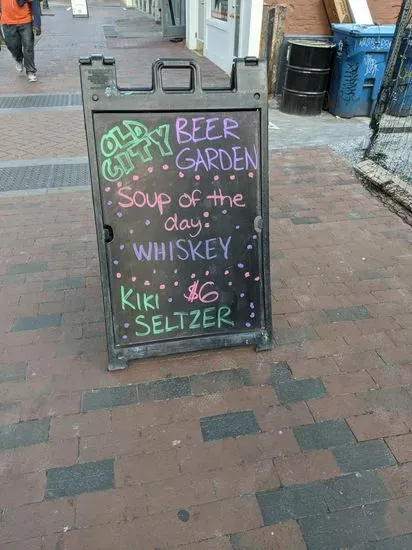 OLD CITY BEER GARDEN
Soup of the
day:
WHISKEY
KIKI $6
SELTZER